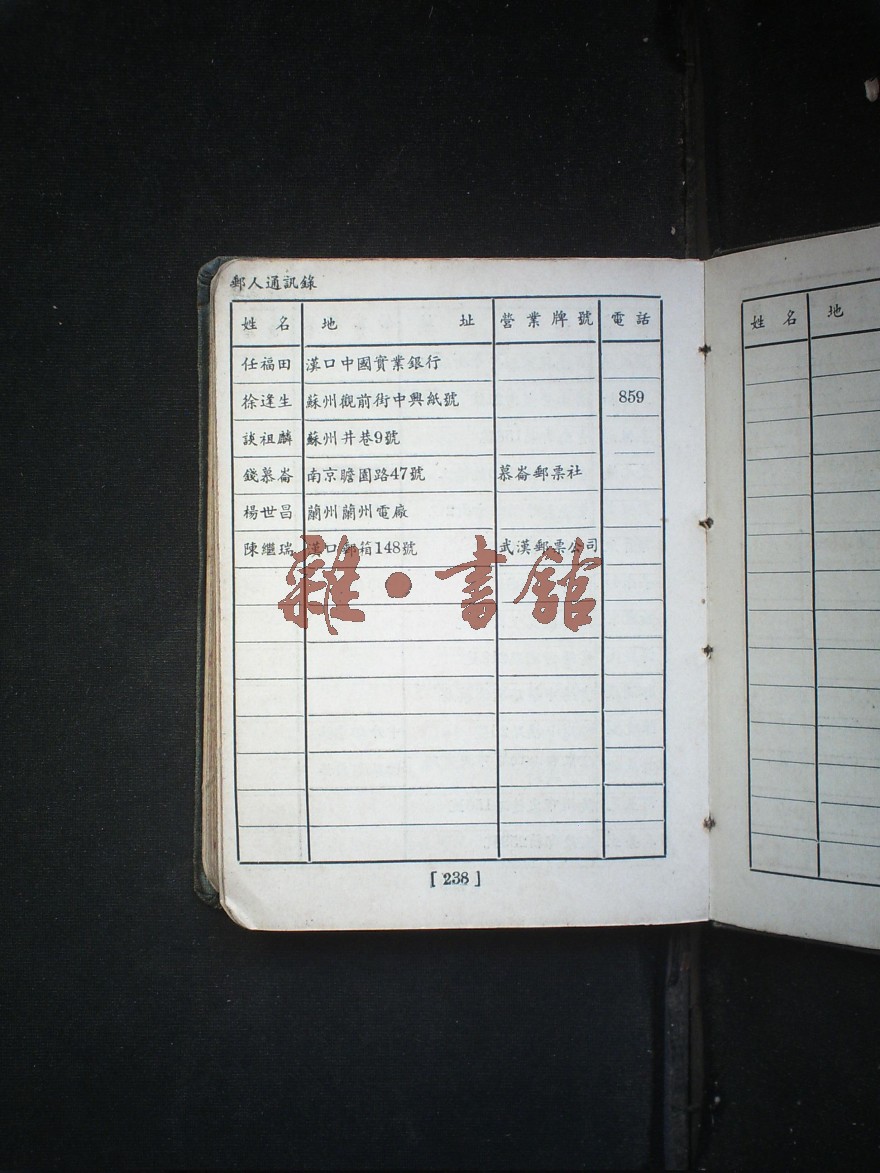 郵人通訊錄
姓 名 地 址 營業牌號 電話
任福田 漢口中國實業銀行
徐逢生 蘇州觀前街中興紙號 859
談祖麟 蘇州井巷9號
錢慕崙 南京瞻園路47號 慕崙郵票社
楊世昌 蘭州蘭州電廠
陳繼瑞 漢口郵箱148號 武漢郵票公司
雜·書館
[ 238 ]
姓 名 地